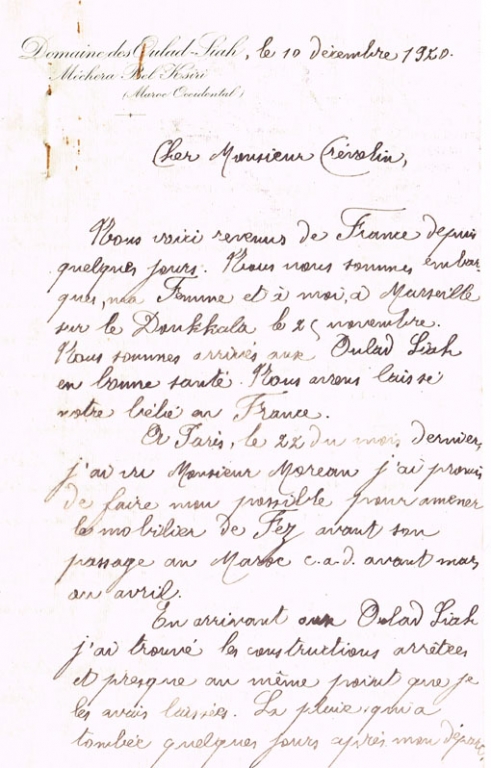 Domaine des Oulad-Liah, le 10 décembre 1920.
Méchera Bel Ksiri
(Maroc Occidental)
Cher Monsieur Crévolin,
Nous voici revenus de France depuis
quelques jours. Nous nous sommes embar-
qués, ma Femme et à moi, à Marseille
sur le Doukkala le 25 novembre.
Nous sommes arrivés aux Oulad Liah
en bonne santé. Nous avons laissé
notre bébé en France.
A Paris, le 22 du mois dernier,
j'ai vu Monsieur Moreau j'ai promis
de faire mon possible pour amener
le mobilier de Fez avant son
passage au Maroc c.a.d. avant mars
ou avril.
En arrivant aux Oulad Liah
j'ai trouvé les constructions arrêtées
et presque au même point que je
les avais laissées. La pluie qui a
tombée quelques jours après mon départ,